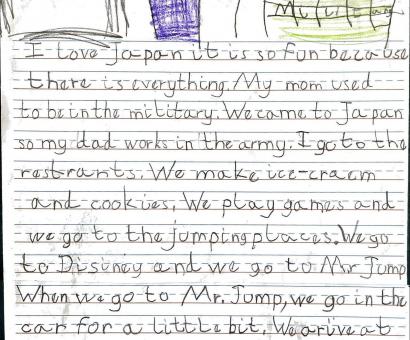 Military
I love Japan it is so fun because
there is everything. My mom used
to be in the military. We came to Japan
so my dad works in the army. I go to the
restrants. We make ice-craem
and cookies. We play games and
we go to the jumping places. We go
to Disiney and we go to Mr Jump
When we go to Mr. Jump, we go in the
car for a little bit. We arive at